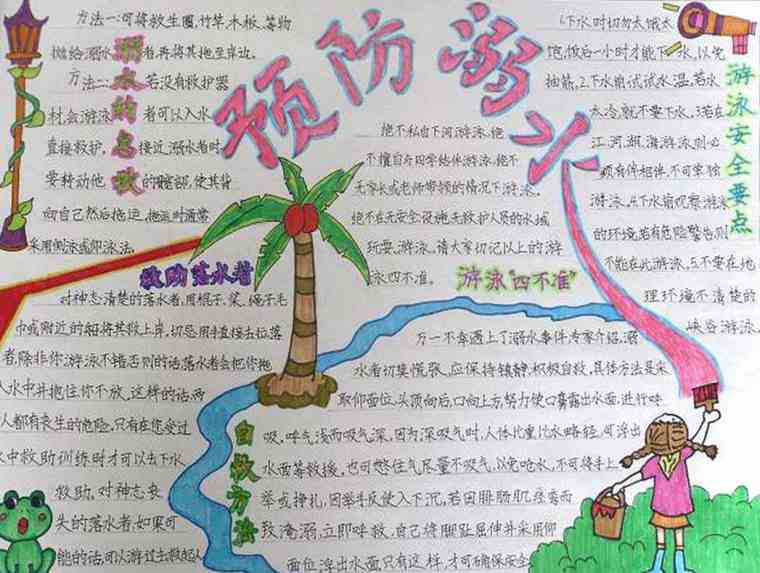 预防溺水
溺水的急救
方法一:可将救生圈,竹竿,木板,等物
抛给溺水者,再将其拖至岸边。
方法二:若没有救护器
材,会游泳者可以入水
直接救护,接近溺水者时
要转动他的髋部,使其背
向自己然后拖运,拖运时通常
采用侧泳或仰泳法
救助落水者
对神志清楚的落水者,用棍子、桨、绳子无
中或附近的船将其救上岸,切忌用手直接去拉落
者,除非你游泳不错否则的话落水者会把你拖
入水中并抱住你不放,这样的话两
人都有丧生的危险,只有在您受过
水中救助训练时才可以去下水
救助,对神志丧
失的落水者,如果可
能的话,可以游过去救起
绝不私自下河游泳,绝
不擅自与同学结伴游泳,绝不
无家长或老师带领的情况下游泳。
绝不在无安全设施无救护人员的水域
玩耍、游泳,请大家切记以上的游
泳四不准。
游泳“四不准”
游泳安全要点
1.下水时切勿太饿太
饱,饭后一小时才能下水,以免
抽筋,2.下水前试试水温,若水
太冷,就不要下水,3.若在
江、河、湖、海游泳则必
须有伴相伴,不可单独
游泳,4.下水前观察游泳
的环境,若有危险警告则
不能在此游泳,5.不要在地
理环境不清楚的
峡谷游泳,
自救方法
万一不幸遇上了溺水事件专家介绍,溺
水者切莫慌张,应保持镇静,积极自救,具体方法是采
取仰面位,头顶向后,口向上方,努力使口鼻露出水面,进行呼
吸,呼气浅而吸气深,因为深吸气时,人体比重比水略轻,可浮出
水面等救援,也可憋住气尽量不吸气,以免呛水,不可将手上
举或挣扎,因举手反使入下沉,若因腓肠肌痉挛而
致淹溺,立即呼救,自己将脚趾屈伸并采用仰
面位浮出水面,只有这样,才可确保安全